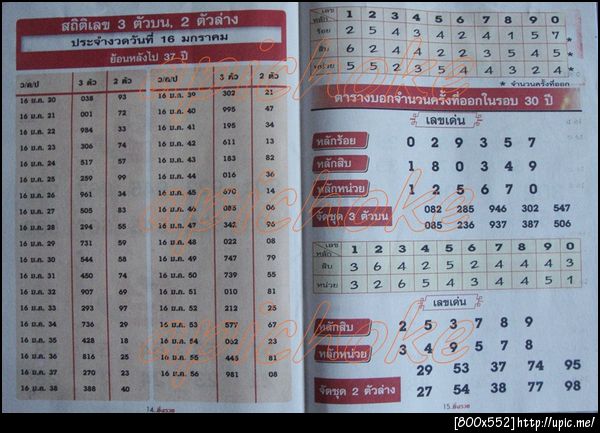 สถิติเลข 3 ตัวบน, 2 ตัวล่าง
ประจำงวดวันที่ 16 มกราคม
ย้อนหลังไป 37 ปี
ว/ด/ป 3 ตัว 2 ตัว ว/ด/ป 3 ตัว 2 ตัว
16 ม.ค. 20 035 93 16 ม.ค. 39 302 21
16 ม.ค. 21 001 72 16 ม.ค. 40 995 47
16 ม.ค. 22 984 33 16 ม.ค. 41 195 34
16 ม.ค. 23 306 74 16 ม.ค. 42 611 13
16 ม.ค. 24 517 57 16 ม.ค. 43 183 82
16 ม.ค. 25 259 99 16 ม.ค. 44 016 36
16 ม.ค. 26 961 34 16 ม.ค. 45 670 14
16 ม.ค. 27 505 83 16 ม.ค. 46 085 06
16 ม.ค. 28 294 55 16 ม.ค. 47 342 96
16 ม.ค. 29 731 59 16 ม.ค. 48 022 08
16 ม.ค. 30 544 58 16 ม.ค. 49 747 79
16 ม.ค. 31 450 74 16 ม.ค. 50 739 55
16 ม.ค. 32 907 69 16 ม.ค. 51 010 81
16 ม.ค. 33 293 97 16 ม.ค. 52 212 25
16 ม.ค. 34 736 29 16 ม.ค. 53 577 67
16 ม.ค. 35 428 18 16 ม.ค. 54 062 23
16 ม.ค. 36 816 25 16 ม.ค. 55 445 81
16 ม.ค. 37 270 23 16 ม.ค. 56 981 08
16 ม.ค. 38 388 40
14
เลข หลัก 1 2 3 4 5 6 7 8 9 0
ร้อย 2 5 2 5 4 2 4 1 5 7 *
สิบ 6 2 4 4 2 2 3 5 4 5 *
หน่วย 5 5 2 3 4 4 4 3 3 4 *
* จำนวนครั้งที่ออก
ตารางบอกจำนวนครั้งที่ออกในรอบ 30 ปี
เลขเด่น
หลักร้อย 0 2 9 3 5 7
หลักสิบ 1 8 0 3 4 9
หลักหน่วย 1 2 5 6 7 0
จัดชุด 3 ตัวบน 082 285 946 302 547
085 236 937 387 506
เลข หลัก 1 2 3 4 5 6 7 8 9 0
สิบ 3 6 4 2 5 4 4 5 5 2
หน่วย 3 2 6 5 4 3 4 4 5 1
เลขเด่น
หลักสิบ 2 5 3 7 8 9
หลักหน่วย 3 4 9 5 7 8
จัดชุด 2 ตัวล่าง 29 53 37 74 95
27 54 38 77 98
15
apichoke
[800x552]http://upic.me/